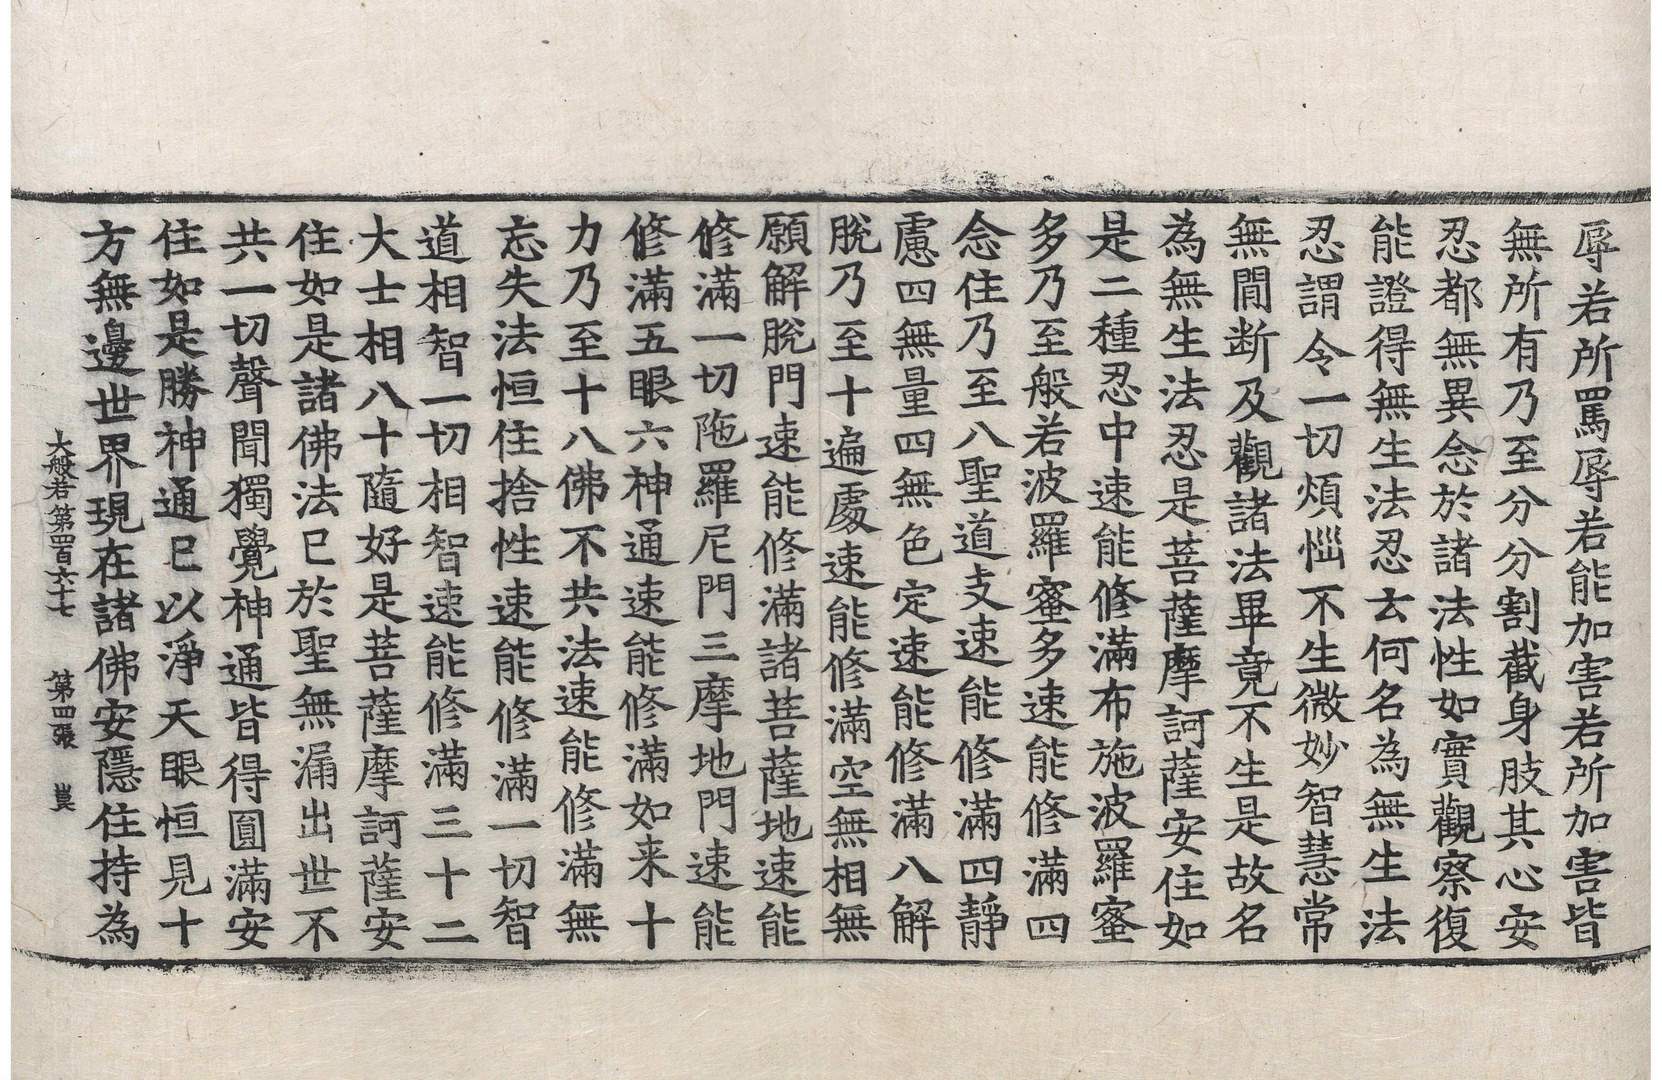 辱若所罵辱若能加害若所加害皆
無所有乃至分分割截身肢其心安
忍都無異念於諸法性如實觀察復
能證得無生法忍云何名為無生法
忍謂令一切煩惱不生微妙智慧常
無閒斷及觀諸法畢竟不生是故名
為無生法忍是菩薩摩訶薩安住如
是二種忍中速能修滿布施波羅蜜
多乃至般若波羅蜜多速能修滿四
念住乃至八聖道支速能修滿四靜
慮四無量四無色定速能修滿八解
脫乃至十遍處速能修滿空無相無
願解脫門速能修滿諸菩薩地速能
修滿一切陁羅尼門三摩地門速能
修滿五眼六神通速能修滿如来十
力乃至十八佛不共法速能修滿無
忘失法恒住捨性速能修滿一切智
道相智一切相智速能修滿三十二
大士相八十隨好是菩薩摩訶薩安
住如是諸佛法已於聖無漏出世不
共一切聲聞獨覺神通皆得圓滿安
住如是勝神通已以淨天眼恒見十
方無邊世界現在諸佛安隱住持為
大般若第四百六十七 第四張 崑